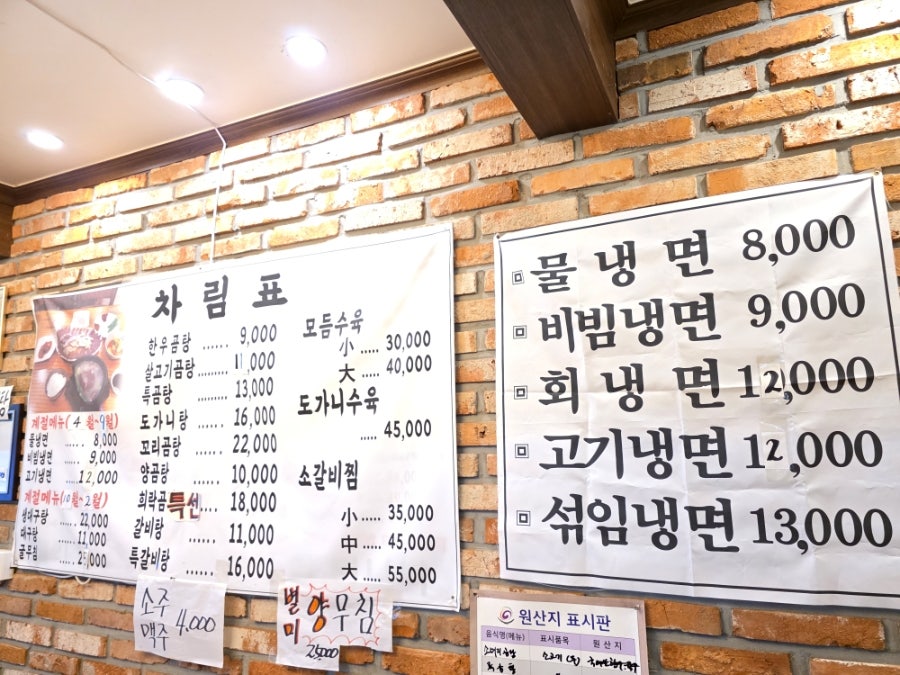 차림표
한우곰탕 ...... 9,000
살고기곰탕 ......... 11,000
특곰탕 ......... 13,000
도가니탕 ...... 16,000
꼬리곰탕 ...... 22,000
양곰탕 ...... 10,000
희락곰특선.... 18,000
갈비탕 ...... 11,000
특갈비탕 ...... 16,000
모듬수육
小 ..... 30,000
大 ..... 40,000
도가니수육
..... 45,000
소갈비찜
小 ..... 35,000
中 ..... 45,000
大 ..... 55,000
계절메뉴(4월~9월)
물냉면 ...... 8,000
비빔냉면 ...... 9,000
고기냉면 ...... 12,000
계절메뉴(10월~2월)
생대구탕 ...... 22,000
대구탕 ...... 11,000
굴무침 ......
소주
맥주 4,000
별미 양무침
25,000
물냉면 8,000
비빔냉면 9,000
회냉면 12,000
고기냉면 12,000
섞임냉면 13,000
원산지 표시판
음식명(메뉴) 표시품목 원산지